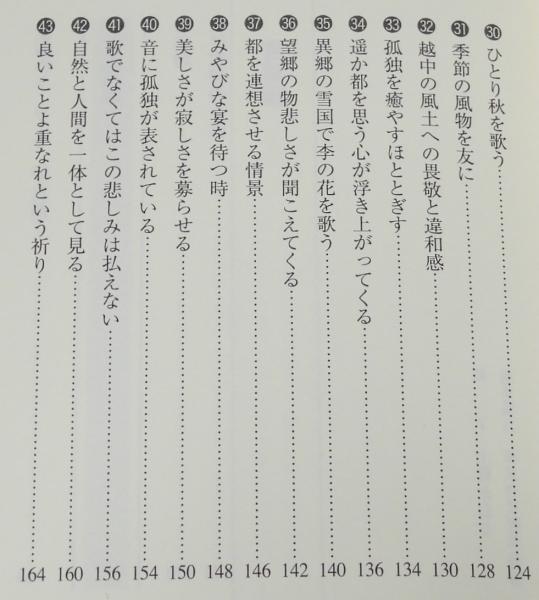 ㉚ ひとり秋を歌う……………………………124
㉛ 季節の風物を友に……………………………128
㉜ 越中の風土への畏敬と違和感……………………………130
㉝ 孤独を癒やすほととぎす……………………………134
㉞ 遥か都を思う心が浮き上がってくる……………………………136
㉟ 異郷の雪国で李の花を歌う……………………………140
㊱ 望郷の物悲しさが聞こえてくる……………………………142
㊲ 都を連想させる情景……………………………146
㊳ みやびな宴を待つ時……………………………148
㊴ 美しさが寂しさを募らせる……………………………150
㊵ 音に孤独が表されている……………………………154
㊶ 歌でなくてはこの悲しみは払えない……………………………156
㊷ 自然と人間を一体として見る……………………………160
㊸ 良いことよ重なれという祈り……………………………164